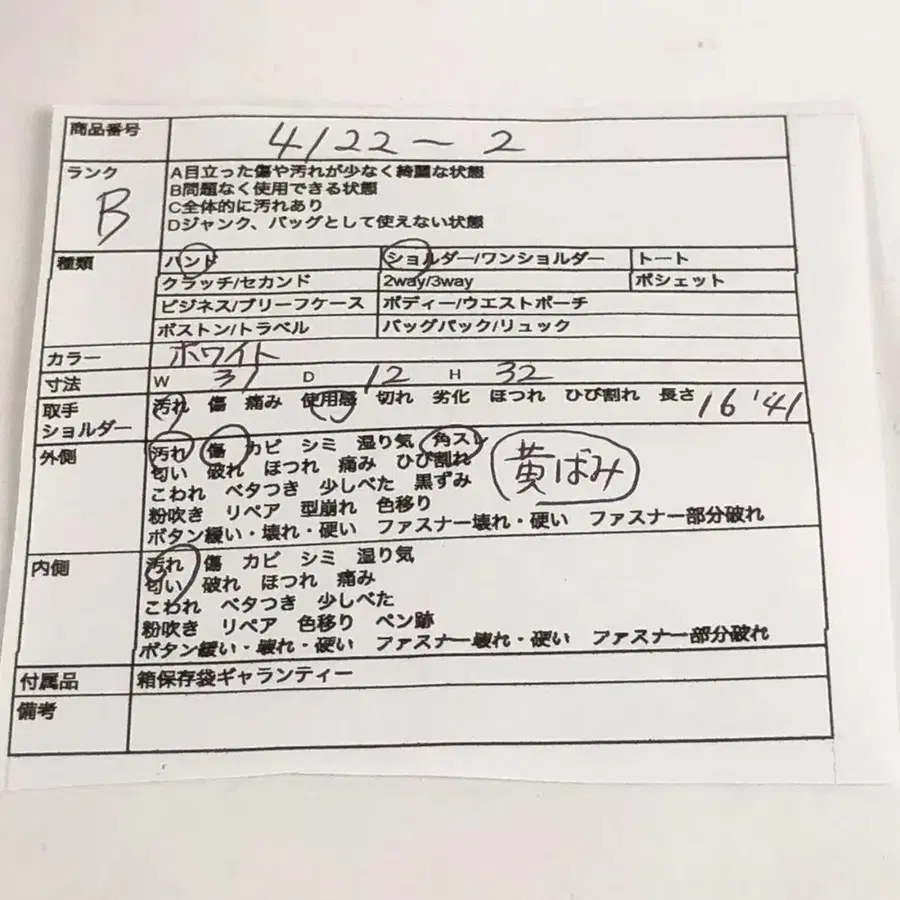 商品番号 4/22〜2
ランク B
A目立った傷や汚れが少なく綺麗な状態
B問題なく使用できる状態
C全体的に汚れあり
Dジャンク、バッグとして使えない状態
種類 ハンド ショルダー/ワンショルダー トート
クラッチ/セカンド 2way/3way ポシェット
ビジネス/ブリーフケース ボディー/ウエストポーチ
ボストン/トラベル バックパック/リュック
カラー ホワイト
寸法 W 31 D 12 H 32
取手 汚れ 傷 痛み 使用感 切れ 劣化 ほつれ ひび割れ 長さ 16 '41
ショルダー
外側 汚れ 傷 カビ シミ 湿り気 角スレ
匂い 破れ ほつれ 痛み ひび割れ 黄ばみ
こわれ ベタつき 少しべた 黒ずみ
粉吹き リペア 型崩れ 色移り
ボタン緩い・壊れ・硬い ファスナー壊れ・硬い ファスナー部分破れ
内側 汚れ 傷 カビ シミ 湿り気
匂い 破れ ほつれ 痛み
こわれ ベタつき 少しべた
粉吹き リペア 色移り ペン跡
ボタン緩い・壊れ・硬い ファスナー壊れ・硬い ファスナー部分破れ
付属品 箱保存袋ギャランティー
備考